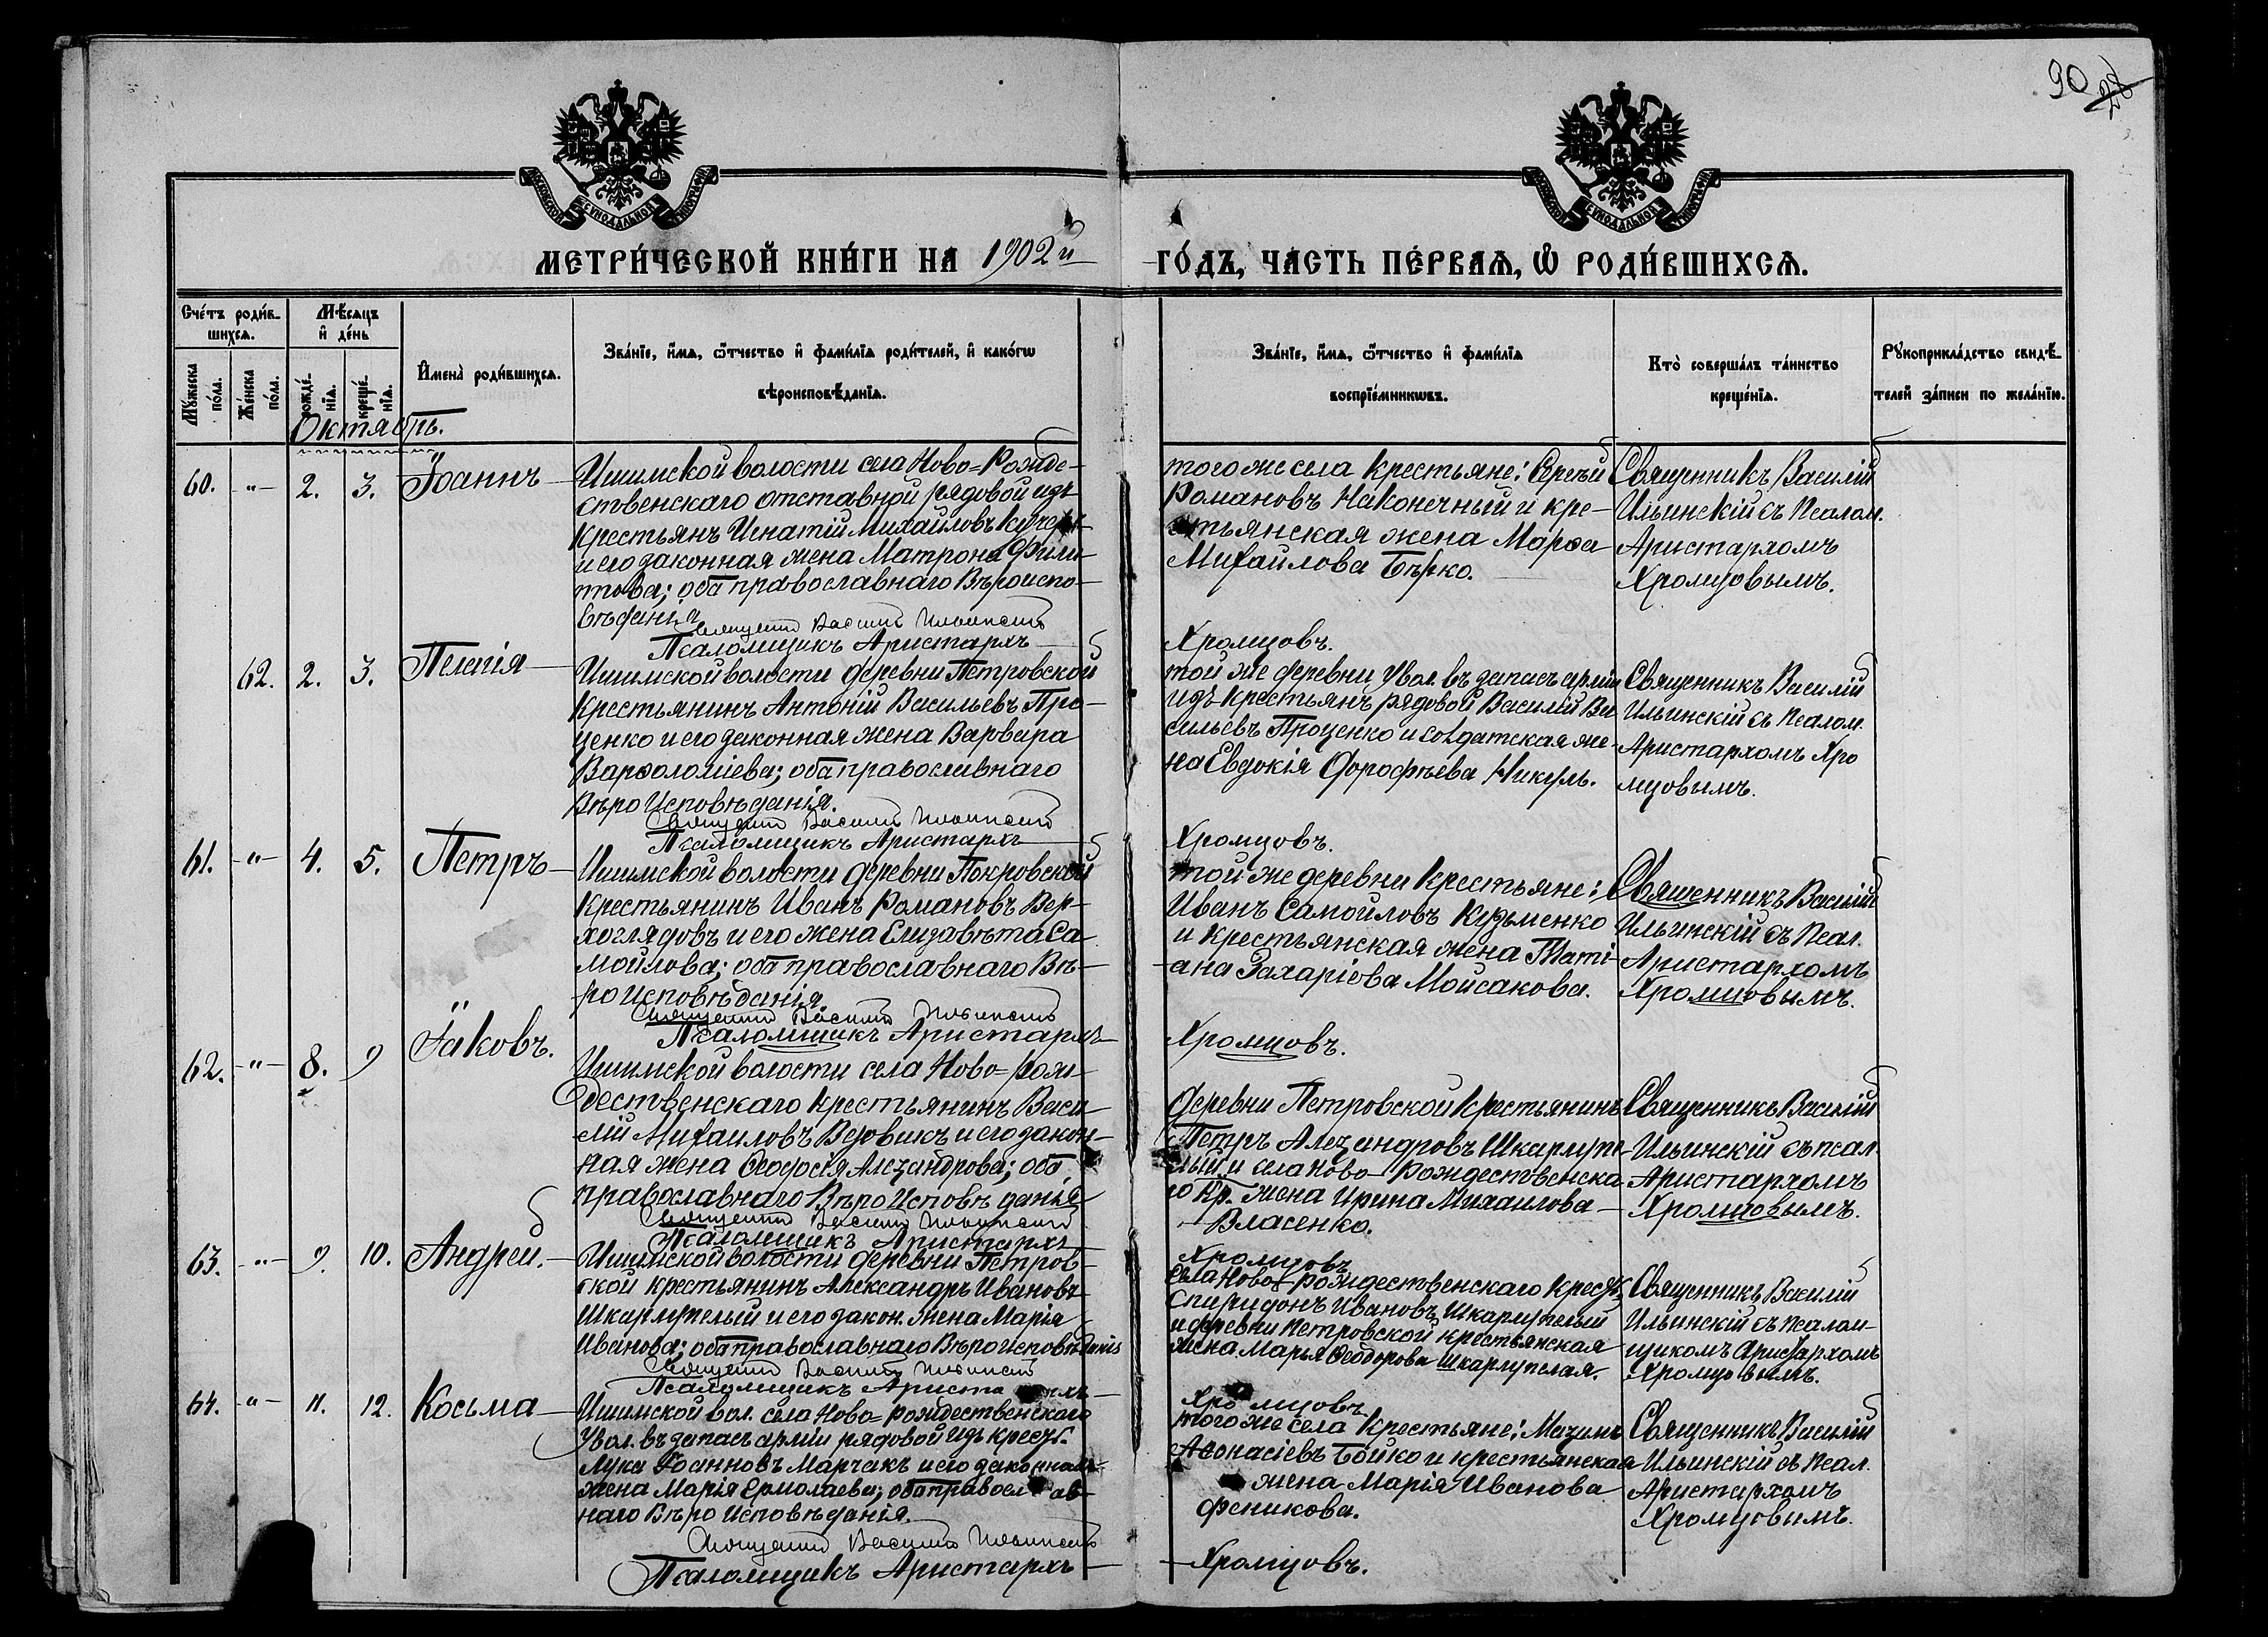 90 28
МОСКОВСКОЙ СѴНОДАЛЬНОЙ ТИПОГРАФІИ
МОСКОВСКОЙ СѴНОДАЛЬНОЙ ТИПОГРАФІИ
МЕТРИ́ЧЕСКОЙ КНИ́ГИ НА 1902й ГО́ДЪ, ЧАСТЬ ПЕ́РВАѦ, Ѽ РОДИ́ВШИХСѦ.
Сче́тъ роди́в-
шихсѧ.
Мꙋ́жеска по́ла.
Же́нска по́ла.
Мѣ́сѧцъ
и҆ де́нь
рожде́-
нїѧ.
креще́-
нїѧ.
И҆мена̀ роди́вшихсѧ.
Зва́нїе, и҆́мѧ, ѻ҆́тчество и҆ фами́лїѧ роди́телей, и҆ како́гѡ
вѣроисповѣ́данїѧ.
Зва́нїе, и҆́мѧ, ѻ҆́тчество и҆ фами́лїѧ
воспрїе́мникѡвъ.
Кто̀ соверша́лъ та́инство
креще́нїѧ.
Рꙋкоприкла́дство свидѣ́-
телей за́писи по жела́нїю.
Октябрь.
60. -"- 2. 3. Іоаннъ
Ишимской волости села Ново=Рожде-
ственскаго отставной рядовой изъ
крестьянъ Игнатій Михайловъ
и его законная жена Матрона Фили-
пова; оба православнаго Вѣроиспо-
вѣданія
Священникъ Василій Ильинскій
Псаломщикъ Аристархъ
того же села крестьяне: Сергѣй
Романовъ Наконечный и кре-
стьянская жена Марѳа
Михайлова Бѣрко.
Хромцовъ.
Священникъ Василій
Ильинскій съ Псалом.
Аристархомъ
Хромцовымъ.
62. 2. 3. Пелагія
Ишимской волости деревни Петровской
крестьянинъ Антоній Васильевъ Про-
ценко и его законная жена Варвара
Варѳоломіева; оба православнаго
Вѣро Исповѣданія.
Священникъ Василій Ильинскій
Псаломщикъ Аристархъ
той же деревни увол. въ запасъ арміи
изъ крестьянъ рядовой Василій Ва
сильевъ Проценко и солдатская же-
на Евдокія Дорофѣева Никуль.
Хромцовъ.
Священникъ Василій
Ильинскій съ Псалом.
Аристархомъ Хро
мцовымъ.
61. -"- 4. 5. Петръ
Ишимской волости деревни Покровской
крестьянинъ Иванъ Романовъ Вер-
хоглядовъ и его жена Елизавѣта Са
мойлова; оба православнаго Вѣ-
ро Исповѣданія.
Священникъ Василій Ильинскій
Псаломщикъ Аристархъ
той же деревни крестьяне:
Иванъ Самойловъ Кузьменко
и крестьянская жена Тати-
ана Захаріова Мойсакова.
Хромцовъ.
Священникъ Василій
Ильинскій съ Псал.
Аристархомъ
Хромцовымъ.
62. -"- 8. 9 Іаковъ.
Ишимской волости села Ново=рож-
дественскаго крестьянинъ Васи-
лій Михаиловъ и его закон-
ная жена Ѳеодосія Алезандрова; оба
православнаго Вѣро Исповѣданія
Священникъ Василій Ильинскій
Псаломщикъ Аристархъ
деревни Петровской крестьянинъ
Петръ Алезандровъ Шкарупе-
лый и села Ново-Рождественска
го кр. жена Ирина Михаилова
Власенко.
Хромцовъ
Священникъ Василій
Ильинскій съ псал.
Аристархомъ
Хромцовымъ.
63. -"- 9. 10. Андрей.
Ишимской волости деревни Петров-
ской крестьянинъ Александръ Ивановъ
Шкарупелый и его закон. жена Марія
Иванова; оба православнаго Вѣро исповѣданія
Священникъ Василій Ильинскій
Псаломщикъ Аристархъ
села Ново-рождественскаго крест.
Спиридонъ Ивановъ Шкарупелый
и деревни Петровской крестьянская
жена Марья Ѳеодорова Шкарупелая.
Хромцовъ
Священникъ Василій
Ильинскій съ Псалом-
щикомъ Аристархомъ
Хромцовымъ.
64. -"- 11. 12. Косьма
Ишимской вол. села Ново=рождественскаго
Увол. въ запасъ арміи рядовой изъ крест.
Лука Іоанновъ Марчакъ и его законная
жена Марія Ермолаева; оба православ-
наго Вѣро Исповѣданія.
Священникъ Василій Ильинскій
Псаломщикъ Аристархъ
того же села крестьяне: Мазимъ
Аѳонасіевъ Бойко и крестьянская
жена Марія Иванова
Феникова.
Хромцовъ.
Священникъ Василій
Ильинскій съ Псал.
Аристархомъ
Хромцовымъ.